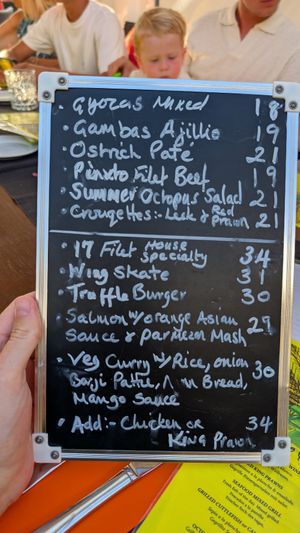 • Gyozas Mixed 18
• Gambas Ajillio 19
• Ostrich Paté 21
• Pinxto Filet Beef 19
• Summer Octopus Salad 21
• Crougettes:- Leek & Red Prawn 21
• 17 Filet House Specialty 34
• Wing Skate 31
• Truffle Burger 30
• Salmon w/orange Asian 29
Sauce & Parmezan Mash
• Veg Curry w/ Rice, onion 30
Barji Pattie, Bread,
Mango Sauce
• Add:- Chicken or 34
King Prawn
KING PRAWNS
SEAFOOD MIXED GRILL
GRILLED CUTTLEFISH